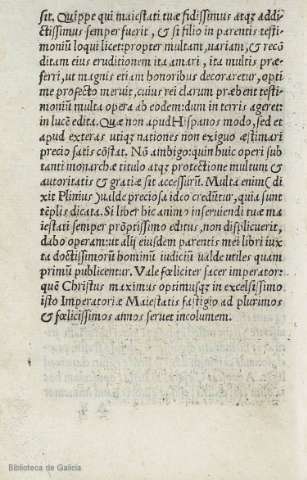 sit. Quippe qui maiestati tuæ fidissimus atqʒ addi-
ctissimus semper fuerit, & si filio in parentis testi-
moniū loqui licet: propter multam, uariam, & recō
ditam eius eruditionem ita amari, ita multis præ-
ferri, ut magnis etiam honoribus decoraretur, opti
me profecto meruit, cuius rei clarum præbent testi-
moniū multa opera ab eodem: dum in terris ageret:
in lucē edita. Quæ non apud Hispanos modo, sed et
apud exteras utiqʒ nationes non exiguo æstimari
precio satis cōstat. Nō ambigo: quin huic operi sub
tanti monarchæ titulo atqʒ protectione multum &
autoritatis & gratiæ sit accessurū. Multa enim (di
xit Plinius) ualde preciosa ideo creditur, quia sunt
tēplis dicata. Si liber hic animo inseruiendi tuæ ma
iestati semper prōptissimo editus, non displicuerit,
dabo operam: ut alij eiusdem parentis mei libri iux
ta doctissimorū hominū iudiciū ualde utiles quam
primū publicentur. Vale fœliciter sacer imperator:
quē Christus maximus optimusqʒ in excelsissimo
isto Imperatoriæ Maiestatis fastigio ad plurimos
& fœlicissimos annos seruet incolumem.
Biblioteca de Galicia